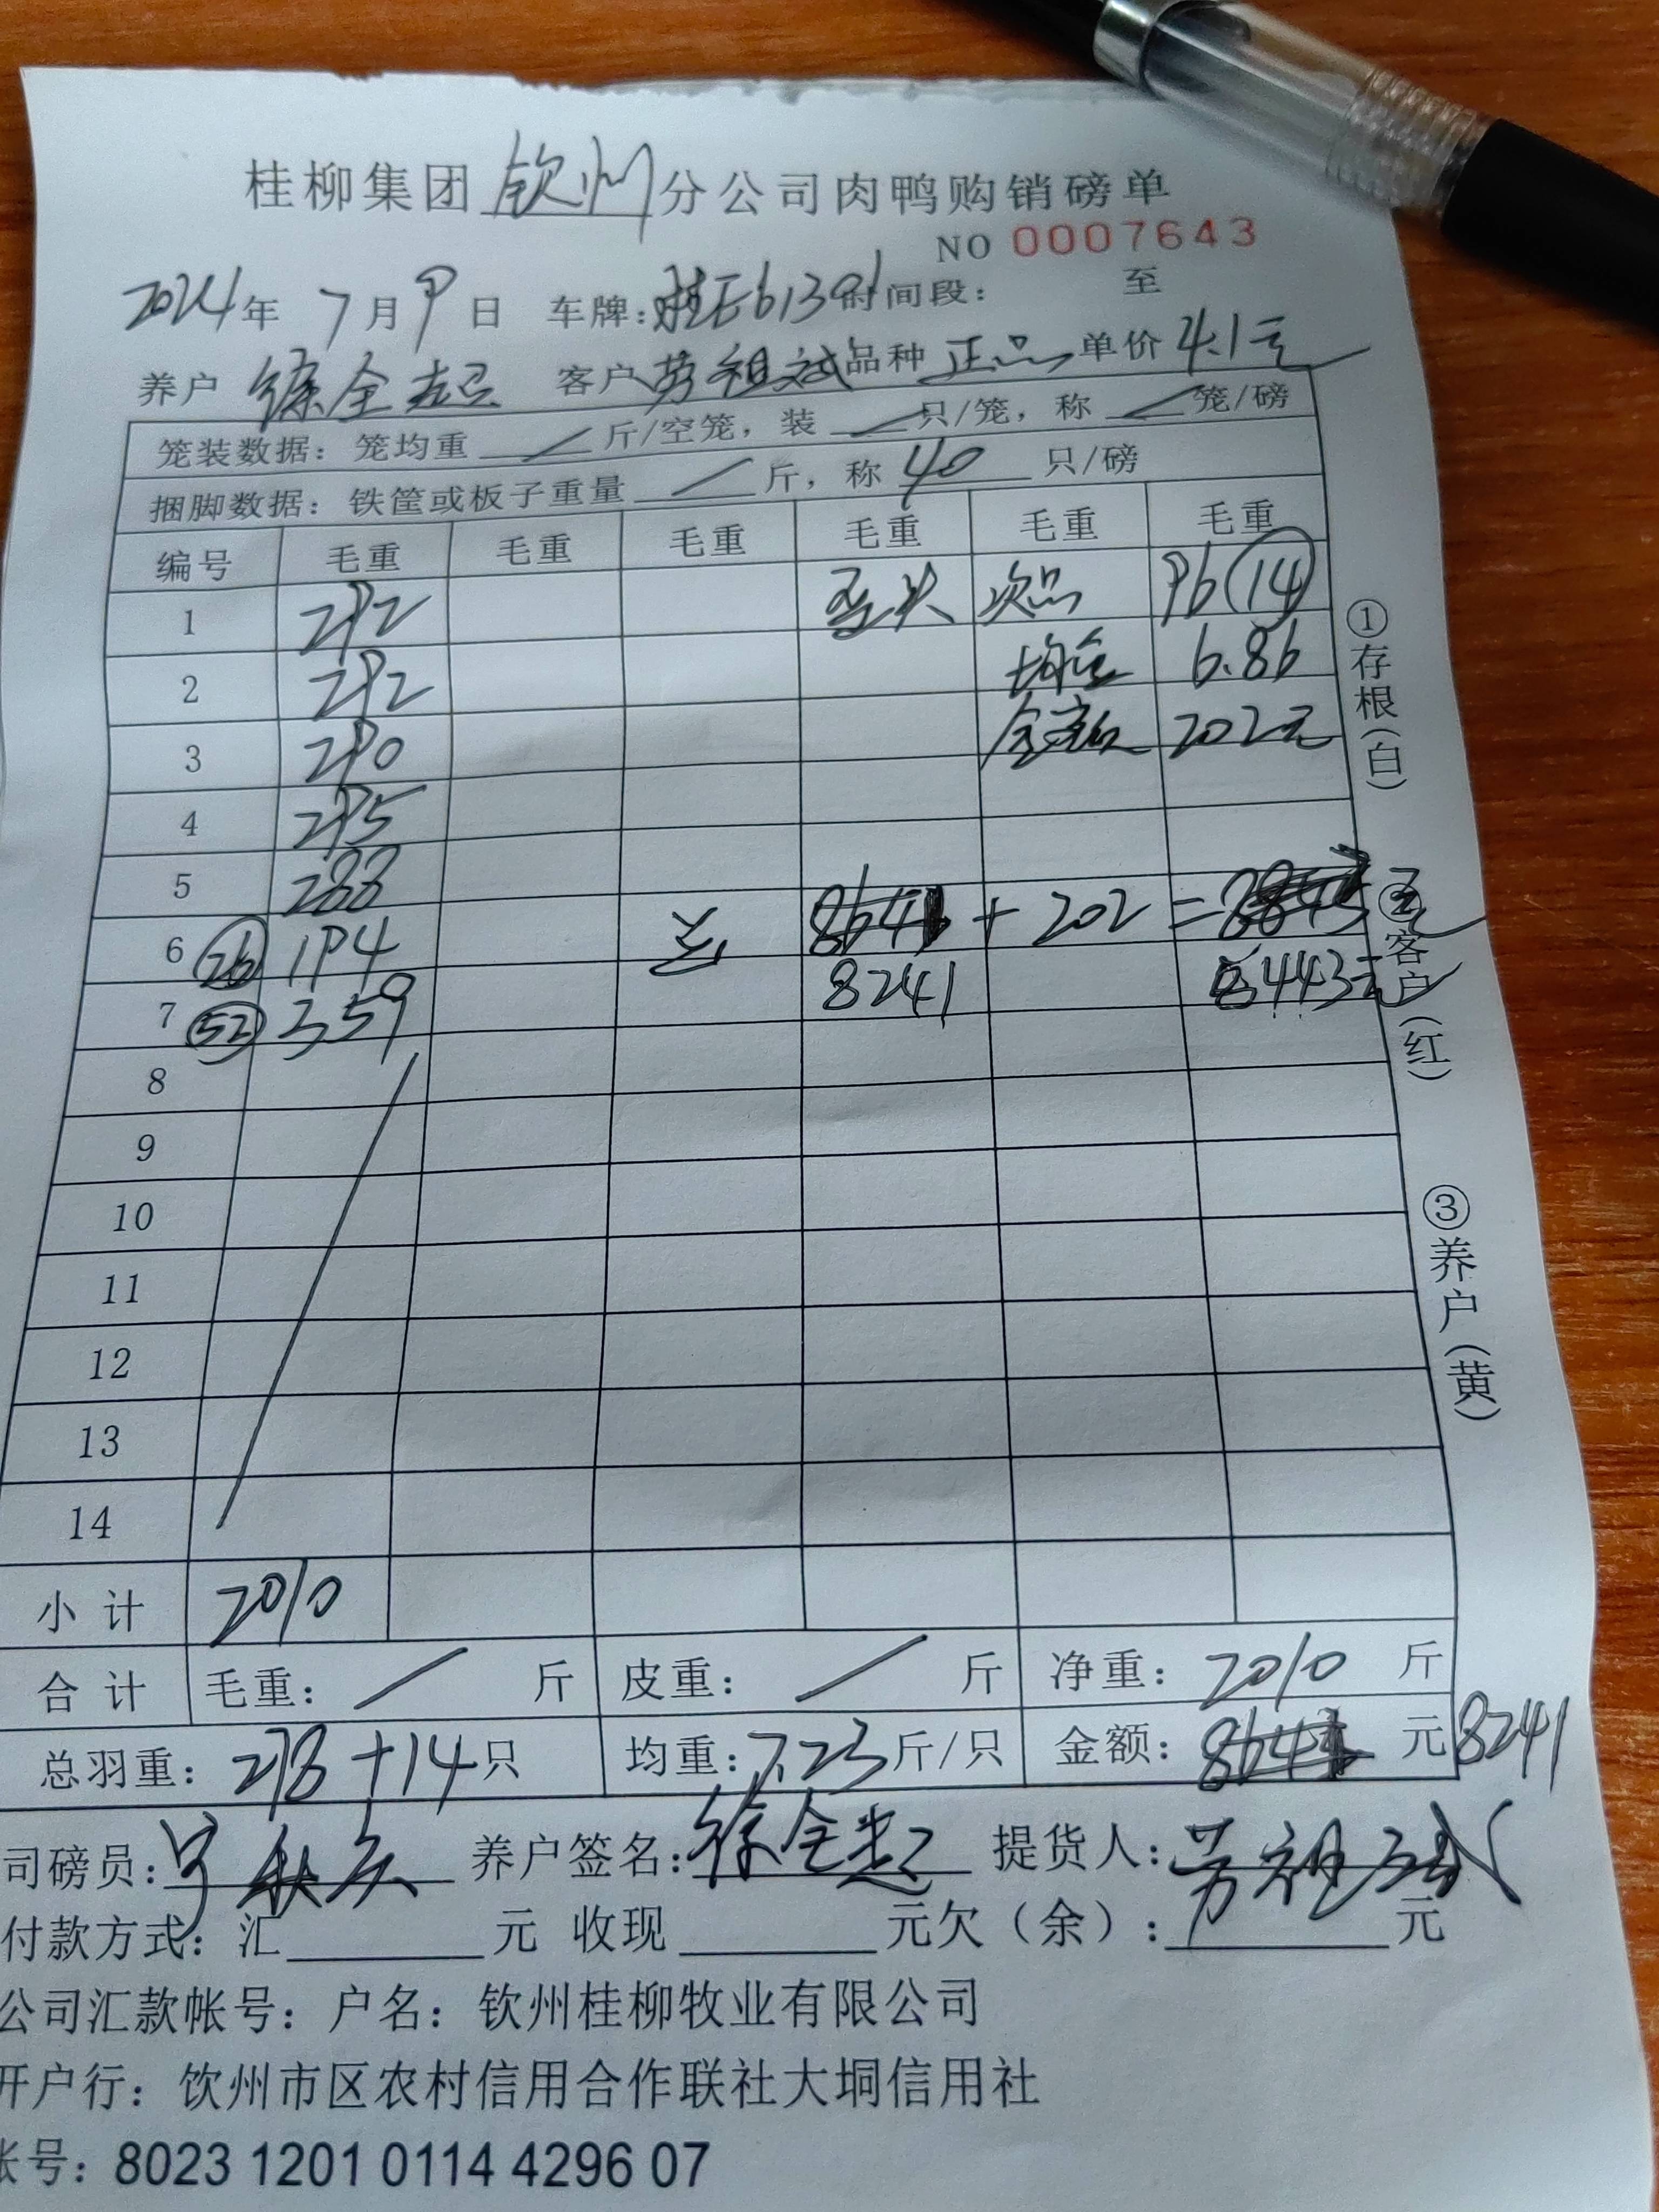 桂柳集团 钦州 分公司肉鸭购销磅单
NO 0007643
2024年 7月9日 车牌: 时间段: 至
养户 徐全起 客户 劳祖斌 品种 正品 单价 4.1元
笼装数据: 笼均重 / 斤/空笼, 装 / 只/笼, 称 / 笼/磅
捆脚数据: 铁筐或板子重量 / 斤, 称 40 只/磅
编号 毛重 毛重 毛重 毛重 毛重 毛重
1 292 次品 96 (14)
2 292 均重 6.86
3 290 金额 202元
4 295
5 288
6 (26) 194 8641 + 202 =
7 (52) 359 8241 8443元
8
9
10
11
12
13
14
小计 2010
合计 毛重: / 斤 皮重: / 斤 净重: 2010 斤
总羽重: 278+14只 均重: 7.23斤/只 金额: 8641 元 8241
司磅员: 养户签名: 徐全起 提货人: 劳祖斌
付款方式: 汇 元 收现 元欠(余): 元
公司汇款帐号: 户名: 钦州桂柳牧业有限公司
开户行: 饮州市区农村信用合作联社大垌信用社
帐号: 8023 1201 0114 4296 07
①存根(白)
②客户(红)
③养户(黄)